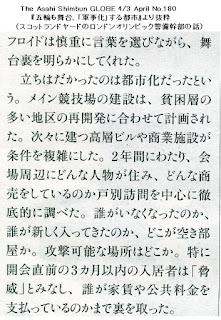 The Asahi Shimbun GLOBE 4/3 April No.180
『五輪も舞台、「軍事化」する都市』より抜粋
（スコットランドヤードのロンドンオリンピック警備幹部の話）
フロイドは慎重に言葉を選びながら、舞
台裏を明らかにしてくれた。
立ちはだかったのは都市化だったとい
う。メイン競技場の建設は、貧困層の
多い地区の再開発に合わせて計画され
た。次々に建つ高層ビルや商業施設が
条件を複雑にした。2年間にわたり、会
場周辺にどんな人物が住み、どんな商
売をしているのか戸別訪問を中心に徹
底的に調べた。誰がいなくなったのか、
誰が新しく入ってきたのか、どこが空き部
屋か。攻撃可能な場所はどこか。特に
開会直前の3カ月以内の入居者は「脅
威」とみなし、誰が家賃や公共料金を
支払っているのかまで裏を取った。